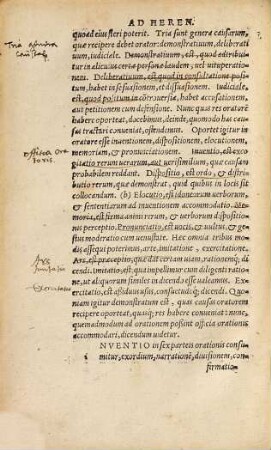 AD HEREN.
quoad eius fieri poterit. Tria sunt genera caussarum,
quæ recipere debet orator: demonstratiuum, deliberati
uum, iudiciale. Demonstratiuum est, quod attribuitur
in alicuius certæ personæ laudem, uel uituperationem.
Deliberatiuum, est, quod in consultatione positum,
habet in se suasionem, et dissuasionem. iudiciale,
est, quod positum in controuersia, habet accusationem, aut
petitionem cum defensione. Nunc quas res oratorem
habere oporteat, docebimus, deinde, quomodo has caus
sas tractari conueniat, ostendemus. Oportet igitur in
oratore esse inuentionem, dispositionem, elocutionem,
memoriam, et pronuntiationem. Inuentio, est exco
gitatio rerum uerarum, aut uerisimilium, quæ caussam
probabilem reddant. Dispositio, est ordo, et distri
butio rerum, quæ demonstrat, quid quibus in locis sit
collocandum. (b) Elocutio, est idoneorum uerborum,
et sententiarum ad inuentionem accommodatio. Me
moria, est firma animi rerum, et uerborum, et dispositio
nis perceptio. Pronuntiatio, est uocis, et uultus, et
gestus moderatio cum uenustate. Hæc omnia tribus mo
dis assequi poterimus, arte, imitatione, exercitatione.
Ars, est præceptio, quæ dat certam uiam, rationemque
dicendi. imitatio, est, qua impellimur cum diligenti ratione,
ut aliquorum similes in dicendo esse ualeamus. Ex
ercitatio, est assiduus usus, consuetudoq; dicendi. Quo
niam igitur demonstratum est, quas caussas oratorem
recipere oporteat, quasq; res habere conueniat: nunc,
quemadmodum ad orationem possint officia oratoris
accommodari, dicendum uidetur.
NVENTIO in sex partes orationis consu
i mitur, exordium, narrationē, diuisionem, con
firmationem
Tria genera
causarū
officia ora
toris.
Ars
Imitatio
Exercitatio